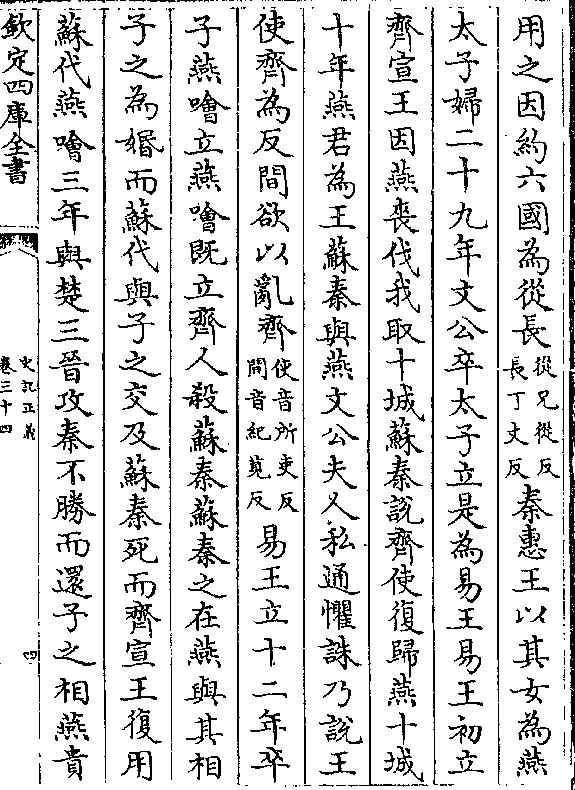 用之因約六國為從長從兄從反長丁丈反秦惠王以其女為燕
太子婦二十九年文公卒太子立是為易王易王初立
齊宣王因燕喪伐我取十城蘇秦說齊使復歸燕十城
十年燕君為王蘇秦與燕文公夫人私通懼誅乃說王
使齊為反間欲以亂齊使音所吏反間音紀莧反易王立十二年卒
子燕噲立燕噲既立齊人殺蘇秦蘇秦之在燕與其相
子之為婚而蘇代與子之交及蘇秦死而齊宣王復用
蘇代燕噲三年與楚三晉攻秦不勝而還子之相燕貴
欽定四庫全書
史記正義
卷三十四
四